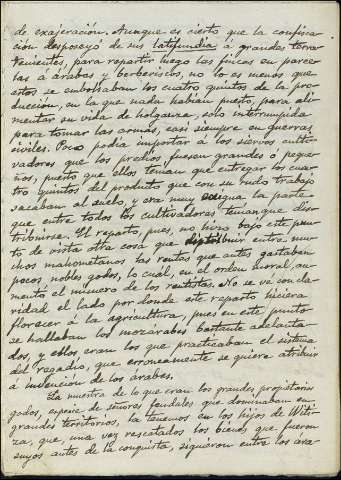 de exajeración. Aunque es cierto que la confisca-
ción desposeyó de sus latifundia á grandes terra-
tenientes, para repartir luego las fincas en parce-
las á árabes y berberiscos, no lo es menos que
estos se embolsaban los cuatro quintos de la pro-
ducción, en la que nada habían puesto, para ali-
mentar su vida de holganza, solo interrumpida
para tomar las armas, casi siempre en guerras
civiles. Poco podia importar á los siervos culti-
vadores que los predios fuesen grandes ó peque-
ños, puesto que ellos tenían que entregar los cua-
tro quintos del producto que con su rudo trabajo
sacaban al suelo, y era muy exigua la parte
que entre todos los cultivadores tenían que dis-
tribuirse. El reparto, pues, no hizo bajo este pun-
to de vista otra cosa que distribuir entre mu-
chos mahometanos las rentas que antes gastaban
pocos nobles godos, lo cual, en el orden rural, au-
mentó el número de los rentistas. No se ve con cla-
ridad el lado por donde este reparto hiciera
florecer á la agricultura, pues en este punto
se hallaban los mozárabes bastante adelanta-
dos, y ellos eran los que practicaban el sistema
del regadío, que erroneamente se quiere atribuir
á invención de los árabes.
La muestra de lo que eran los grandes propietarios
godos, especie de señores feudales que dominaban en
grandes territorios, la tenemos en los hijos de Witi-
za, que, una vez rescatados los bienes que fueron
suyos antes de la conquista, siguieron entre los ára-